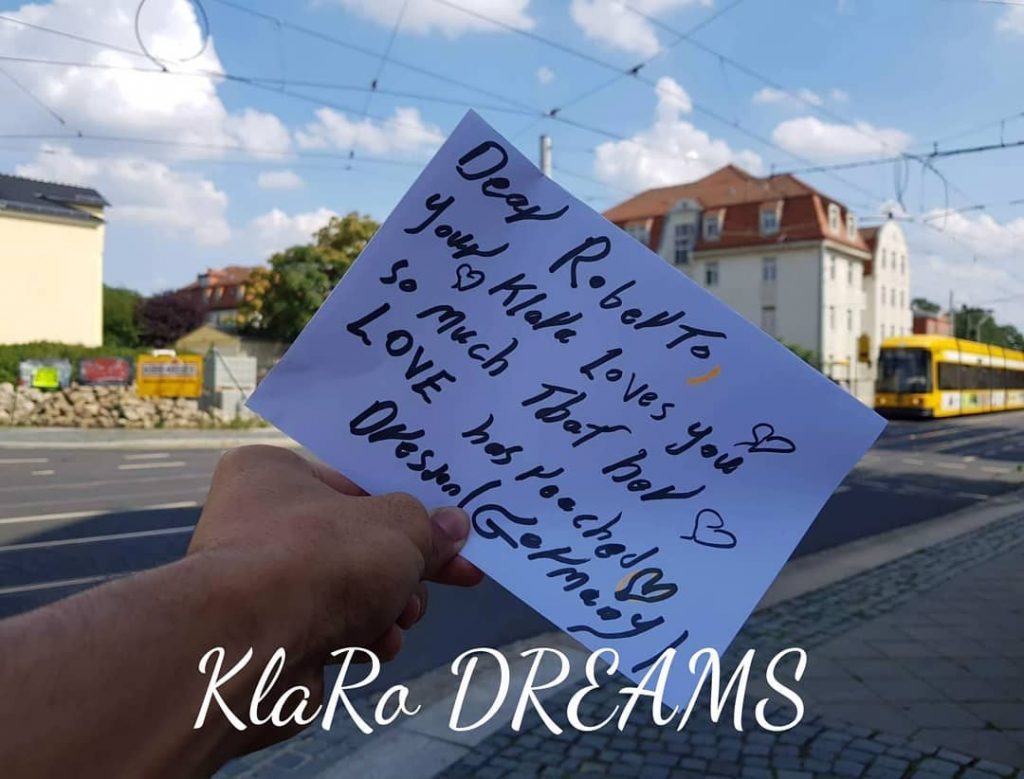 Dear Roberto,
your Klara Loves you
so Much That her
LOVE has reached
Dresden (Germany)
KlaRo DREAMS